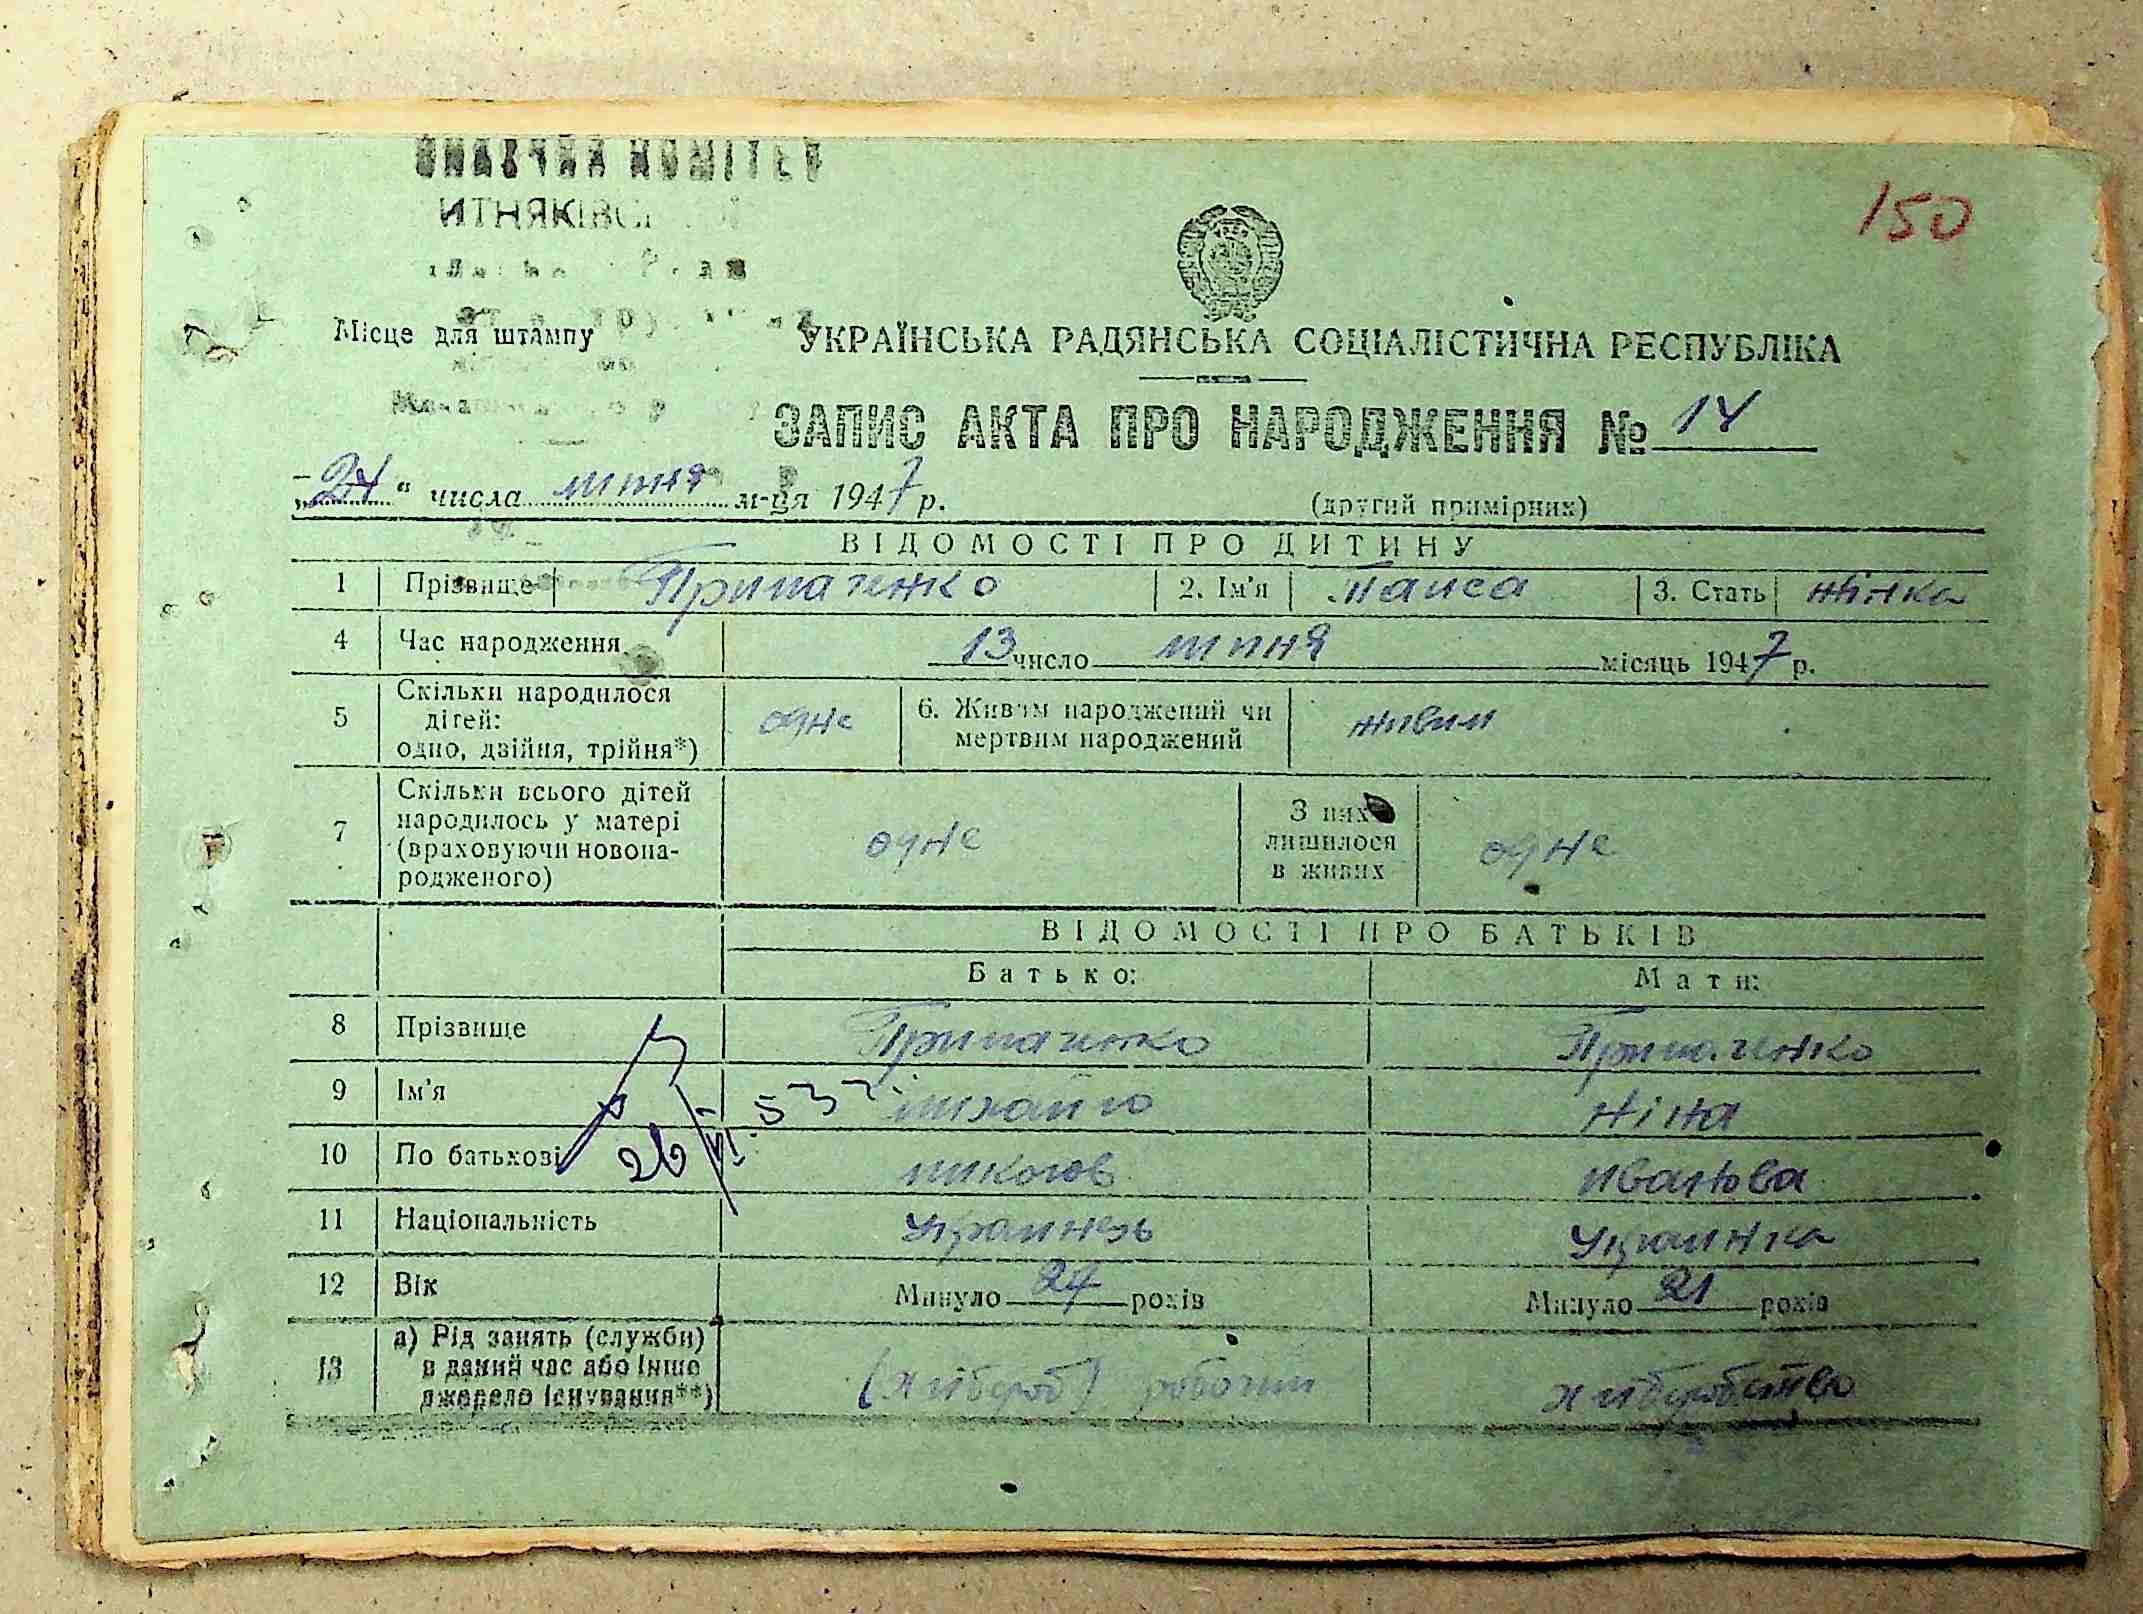 150
ИТНЯКІВСЬ
Місце для штампу
УКРАЇНСЬКА РАДЯНСЬКА СОЦІАЛІСТИЧНА РЕСПУБЛІКА
ЗАПИС АКТА ПРО НАРОДЖЕННЯ № 14
„24“ числа липня м-ця 1947 р. (другий примірник)
ВІДОМОСТІ ПРО ДИТИНУ
1 Прізвище Припаченко 2. Ім'я Таиса 3. Стать жінка
4 Час народження 13 число липня місяць 1947 р.
5 Скільки народилося дітей: одно, двійня, трійня*) одне 6. Живим народжений чи мертвим народжений живим
7 Скільки всього дітей народилось у матері (враховуючи новонародженого) одне З них лишилося в живих одне
ВІДОМОСТІ ПРО БАТЬКІВ
Батько: Мати:
8 Прізвище Припаченко Припаченко
9 Ім'я михайло Ніна
10 По батькові миколов ивановa
26/VI.53
11 Національність Украинець Украинка
12 Вік Минуло 24 років Минуло 21 років
13 а) Рід занять (служби) в даний час або інше джерело існування**) (хлібороб) робочий хліборобство